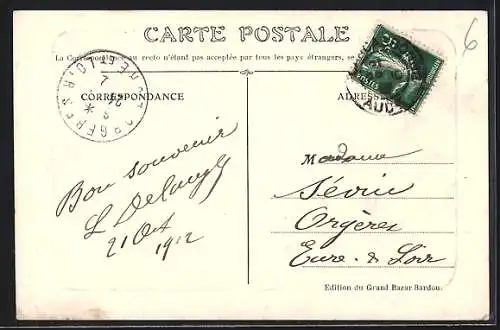 CARTE POSTALE
La Correspondance au recto n'étant pas acceptée par tous les pays étrangers, se
CORRESPONDANCE
ADRESSE
ORGERES
EURE-ET-LOIR
AUDE
6
Bon souvenir
21 Oct
1912
Madame
Sévin
Orgères
Eure & Loir
Edition du Grand Bazar Bardou.